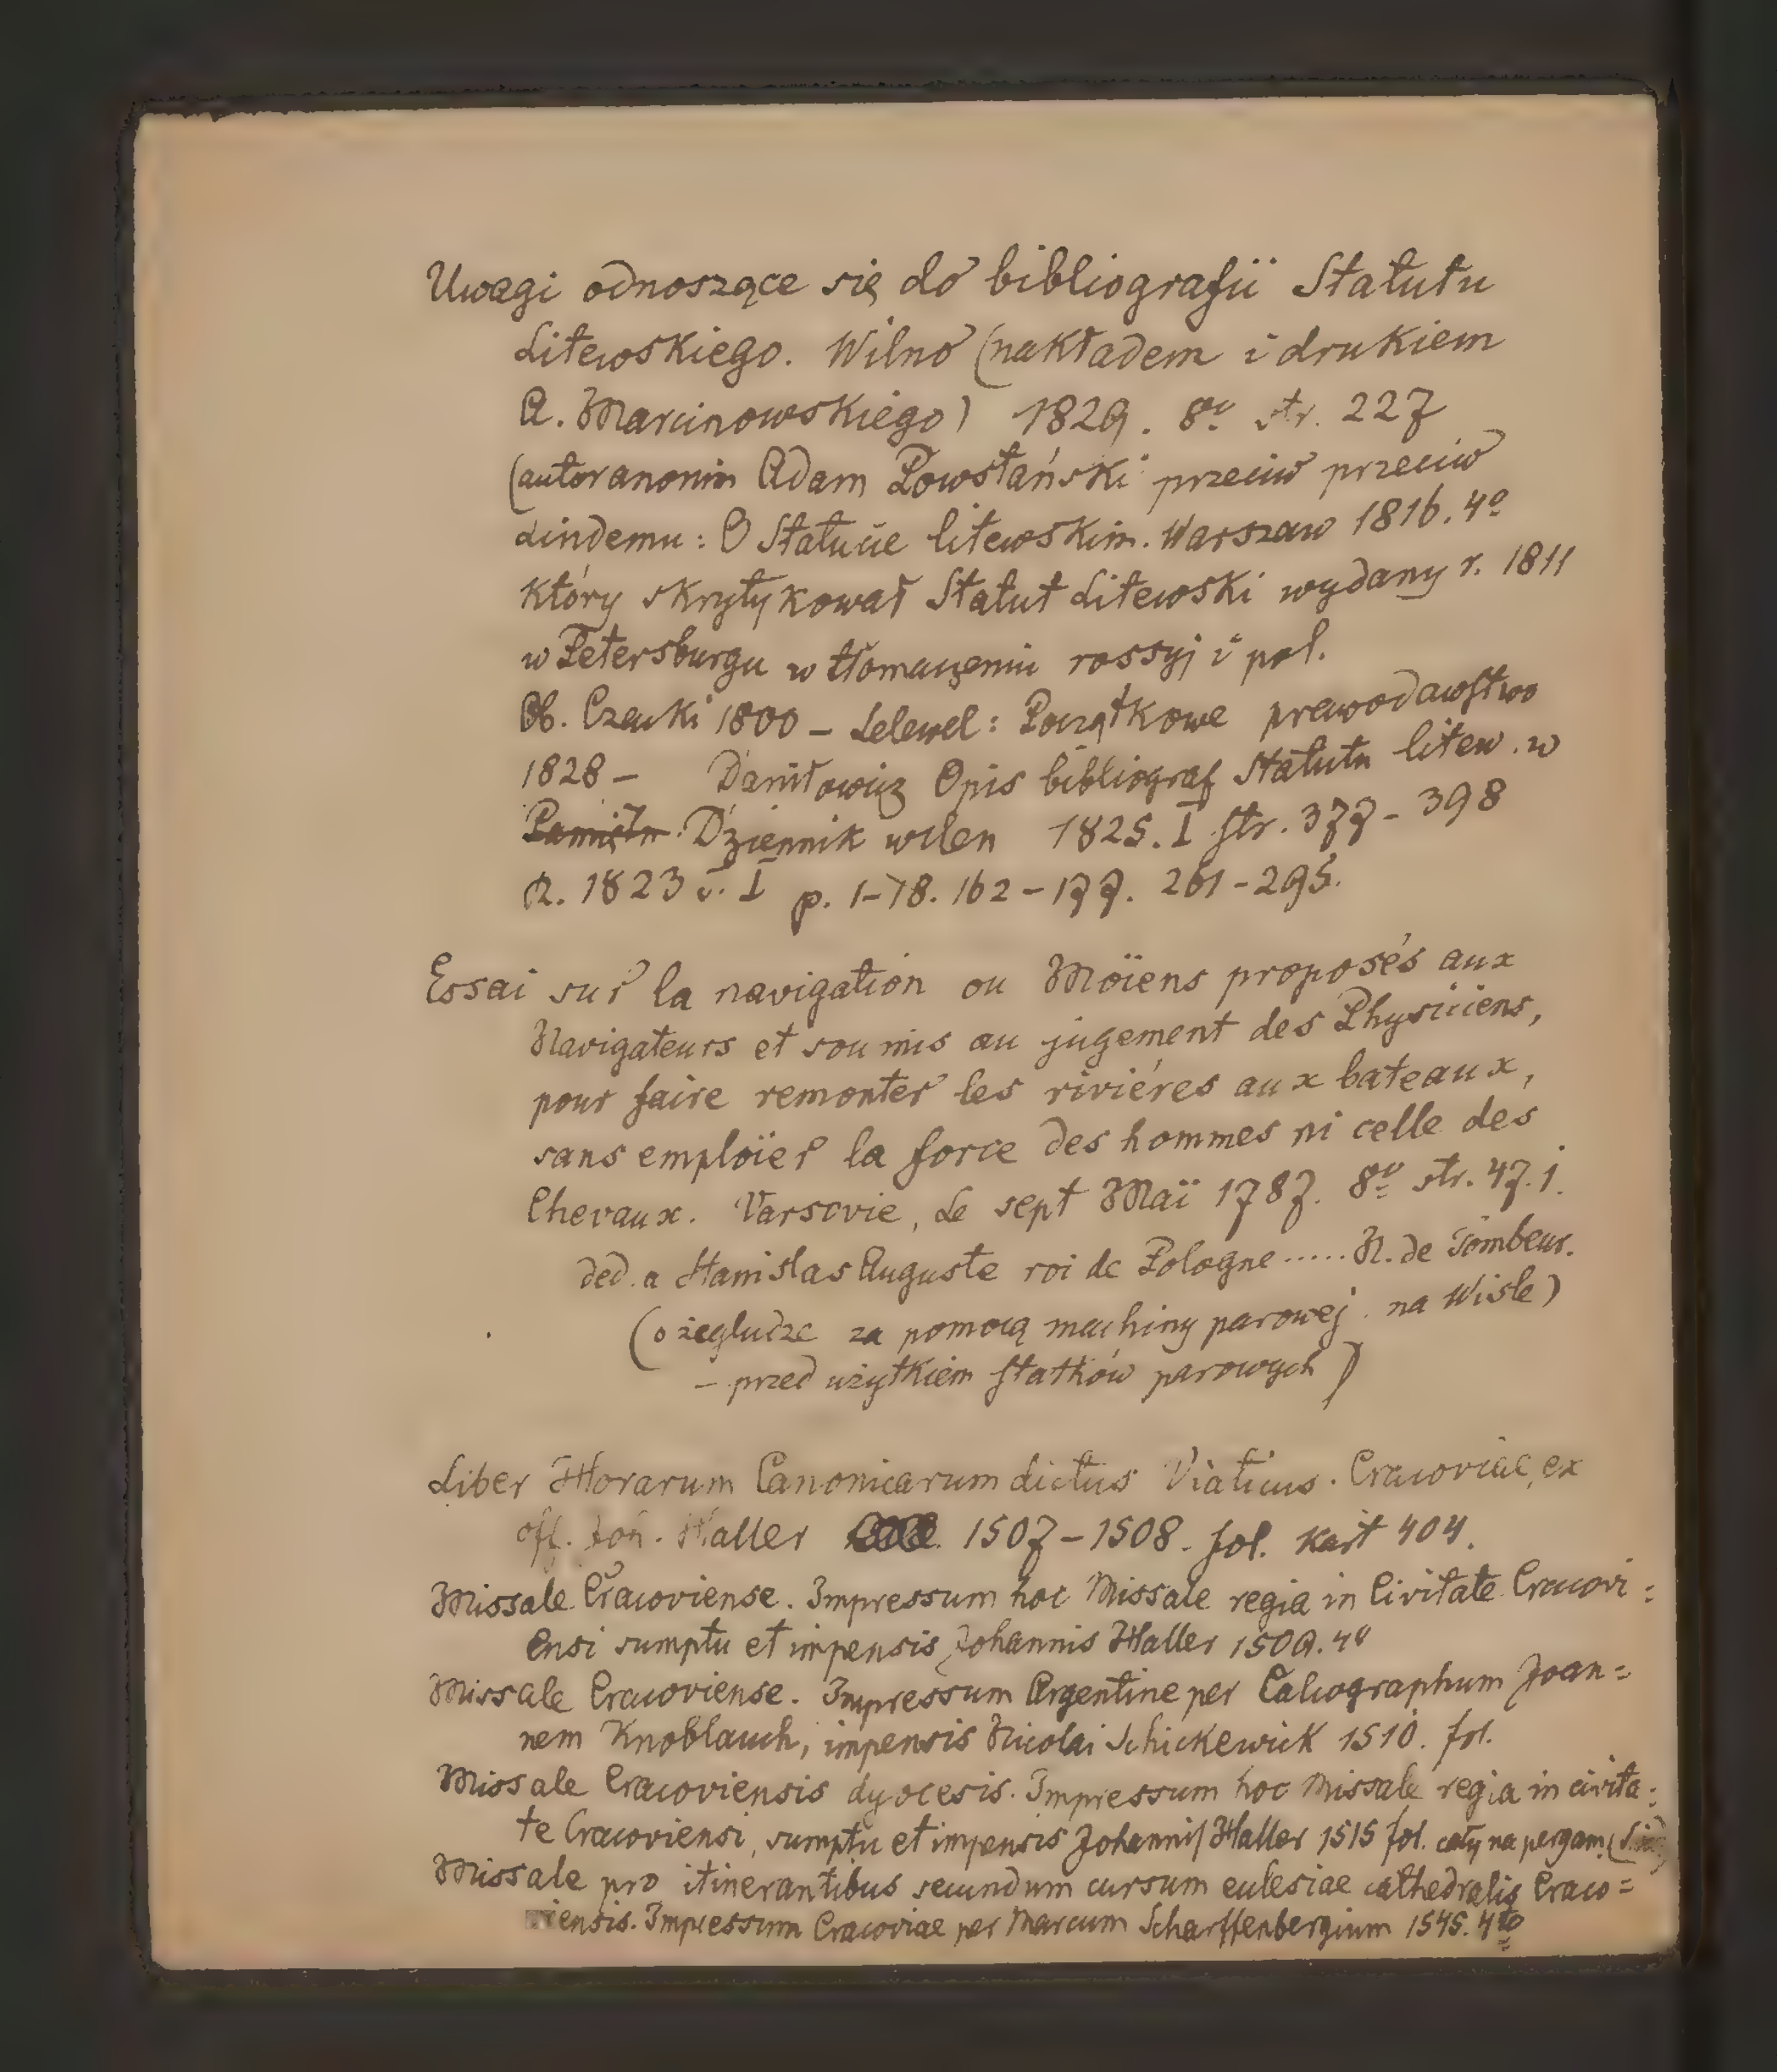 Uwagi odnoszące się do bibliografii Statutu
Litewskiego. Wilno (nakładem i drukiem
A. Marcinowskiego) 1829. 8º str. 227
(autor anonim Adam Powstański przeciw przeciw
Lindemu: O Statucie litewskim. Warszaw 1816. 4º
który skrytykował Statut Litewski wydany r. 1811
w Petersburgu w tłomaczeniu rossyj i pol.
Ob. Czacki 1800 – Lelewel: Początkowe prawodawstwo
1828 – Daniłowicz Opis bibliograf Statutu litew. w
Pamiętn. Dziennik wilen 1825. I str. 377 - 398
R. 1823 v. I p. 1-78. 162 - 177. 261 - 295.
Essai sur la navigation ou Moïens proposés aux
Navigateurs et soumis au jugement des Physiciens,
pour faire remonter les riviéres aux bateaux,
sans emploïer la force des hommes ni celle des
Chevaux. Varsovie, Le sept Maï 1787. 8º str. 47. j.
ded. a Stanislas Auguste roi de Pologne ..... N. de Tombeur.
(o żegludze za pomocą machiny parowej na Wisle)
– przed użytkiem statków parowych)
Liber Horarum Canonicarum dictus Viaticus. Cracoviae, ex
off. Joh. Haller 1507 - 1508. fol. kart 404.
Missale Cracoviense. Impressum hoc Missale regia in Civitate Cracovi=
ensi sumptu et impensis Johannis Haller 1509. 4º
Missale Cracoviense. Impressum Argentine per Calcographum Joan=
nem Knoblauch, impensis Nicolai Schickewick 1510. fol.
Missale Cracoviensis dyocesis. Impressum hoc Missale regia in civita=
te Cracoviensi, sumptu et impensis Johannis Haller 1515 fol. cały na pergam.
Missale pro itinerantibus secundum cursum eclesiae cathedralis Craco=
viensis. Impressum Cracoviae per Marcum Scharffenbergium 1545. 4to